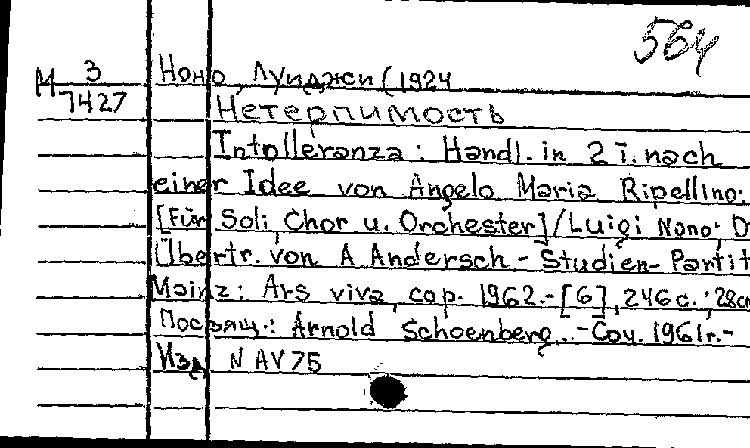 564
М 3/7427
Ноно, Луиджи (1924
Нетерпимость
Intolleranza: Handl. in 2 T. nach
einer Idee von Angelo Maria Ripellino.
[Für Soli, Chor u. Orchester]/Luigi Nono; D
Übertr. von A Andersch - Studien-Partit
Mainz: Ars viva, cop. 1962.-[6], 246 c.; 28cm
Посвящ.: Arnold Schoenberg. - Соч. 1961г.-
Изд N AV 75